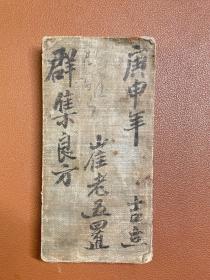 庚申年 吉立
崔老五置
群集良方